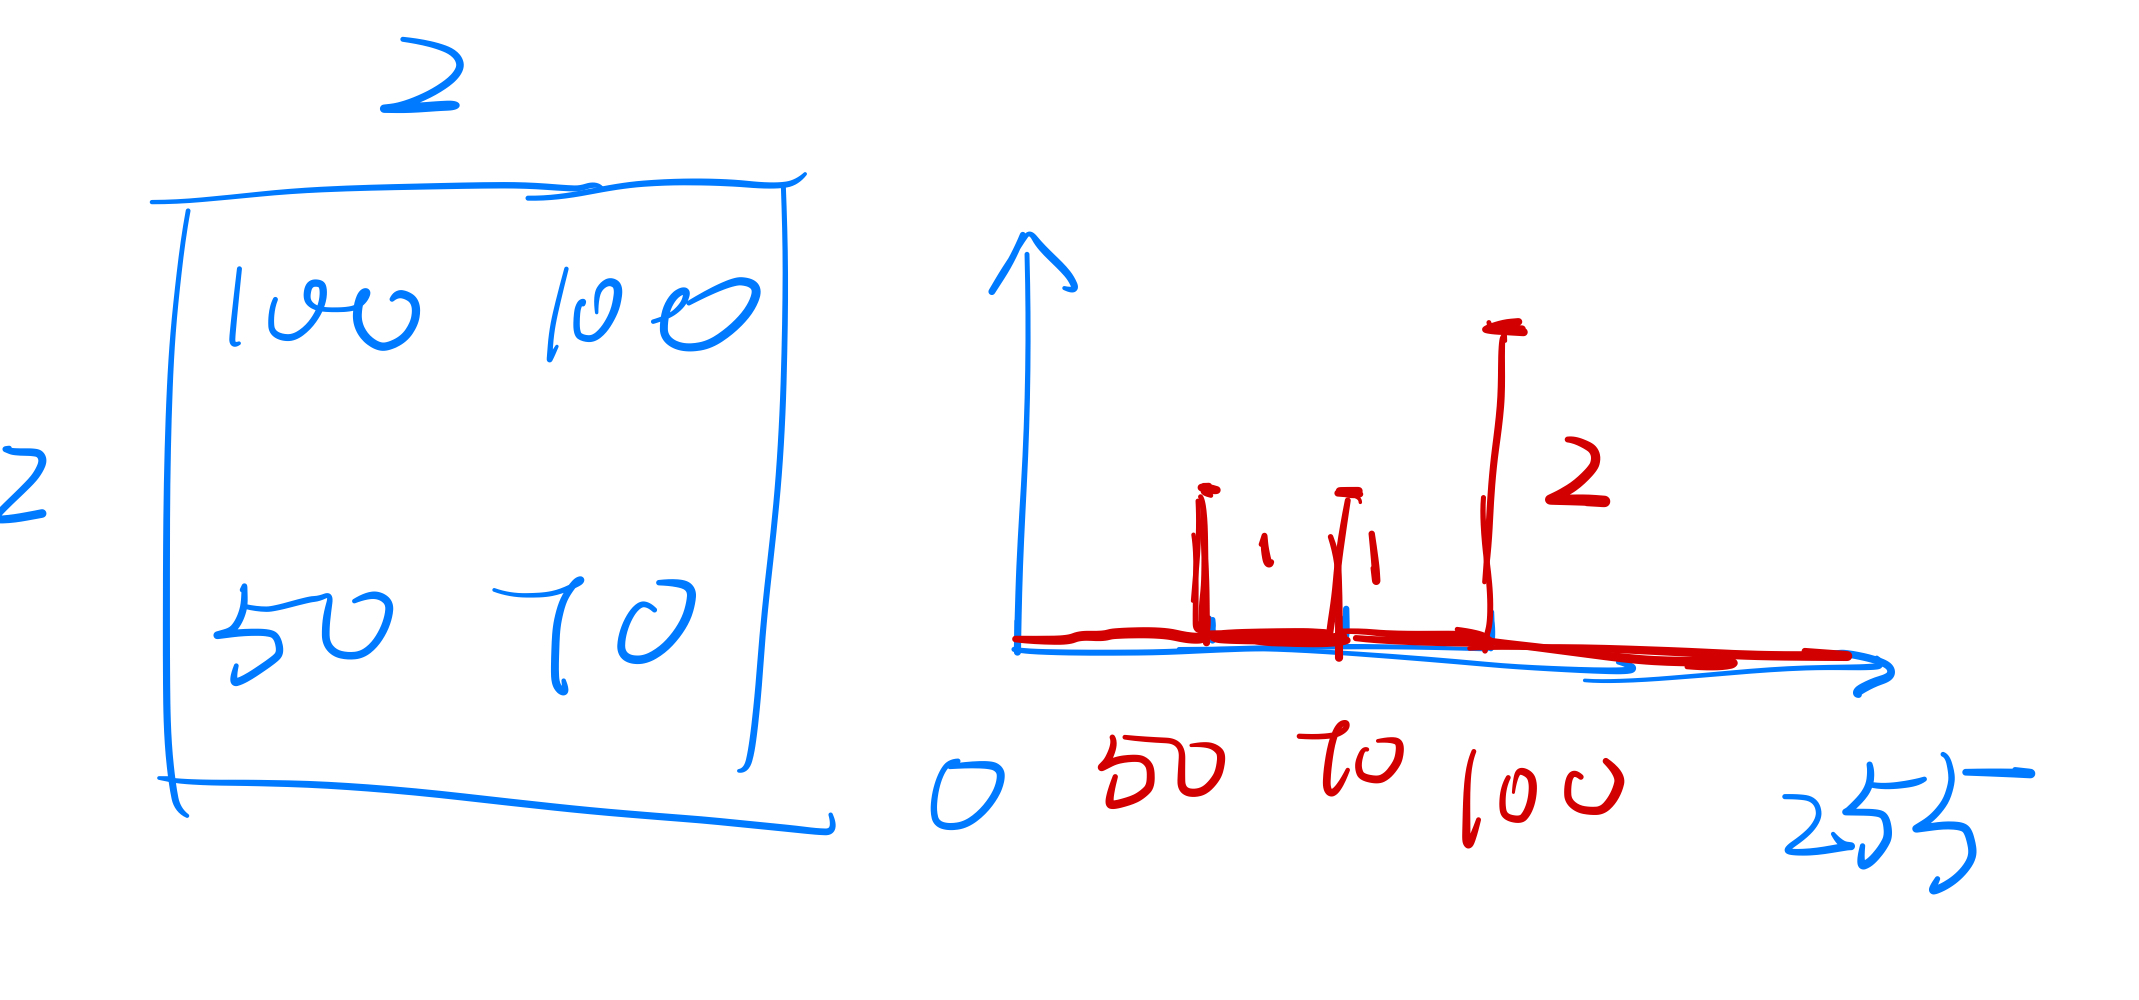 2
100 100
2
50 70
1 1 2
0 50 70 100 255